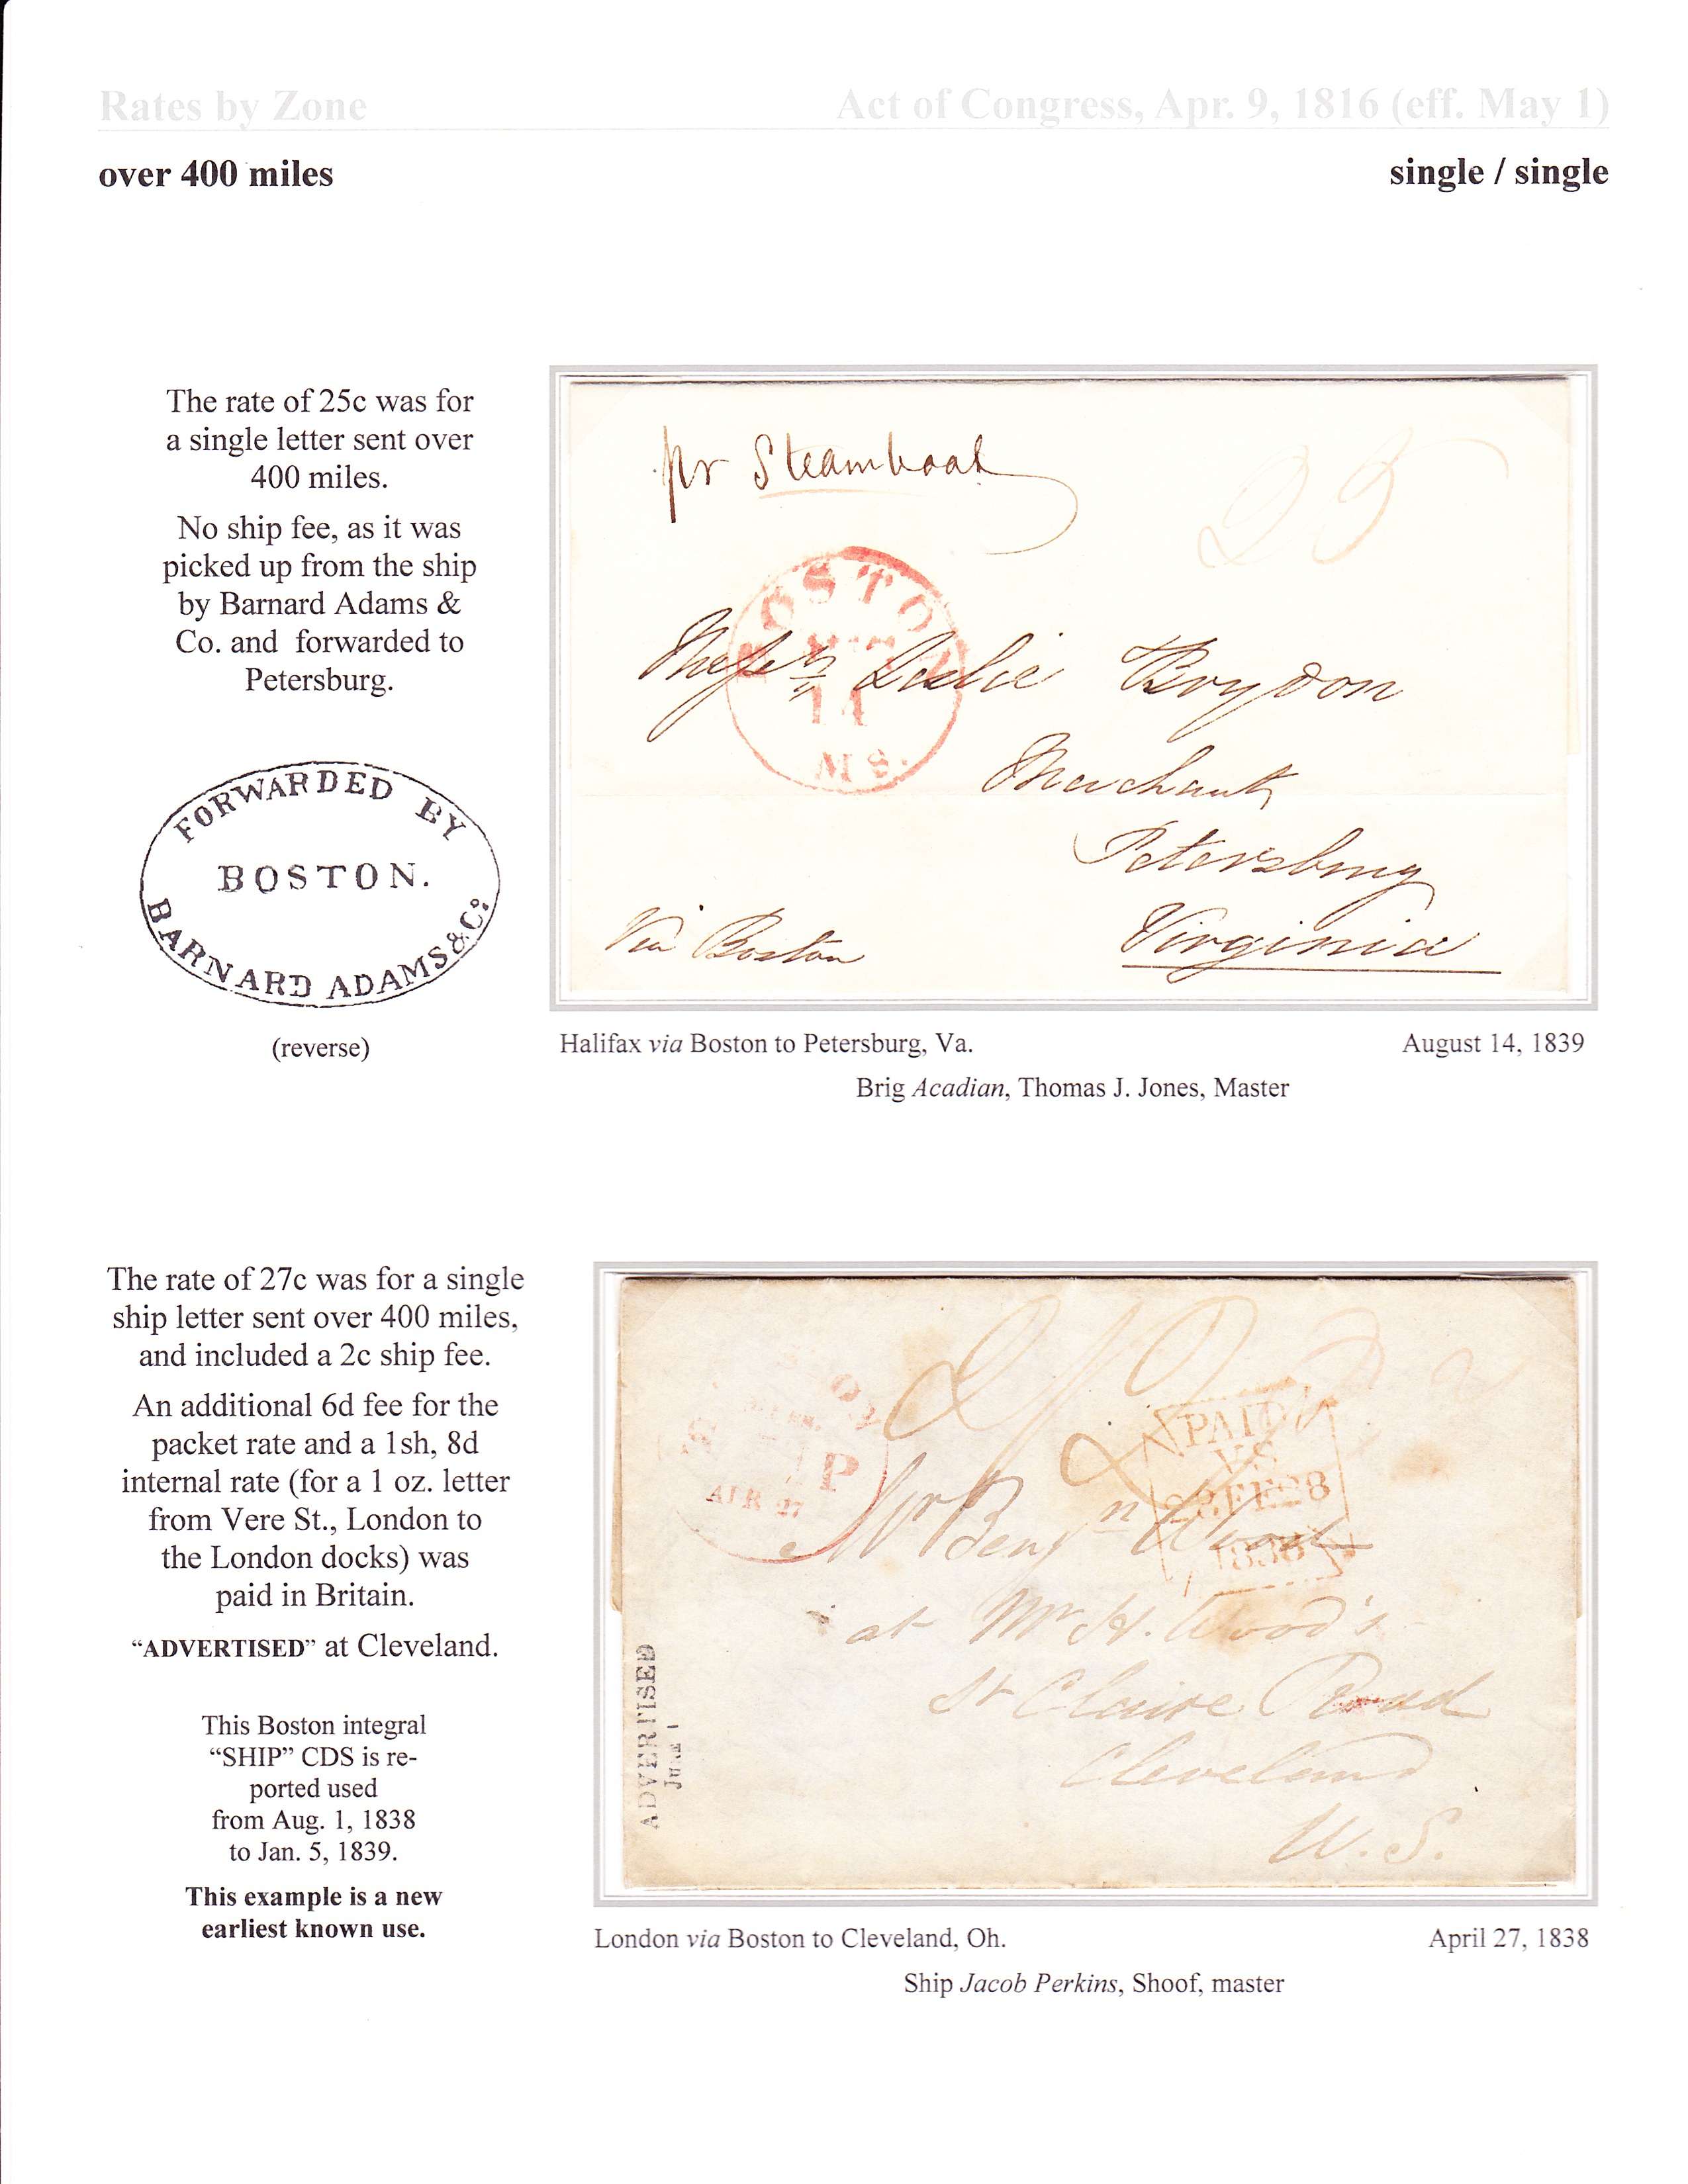 Rates by Zone
Act of Congress, Apr. 9, 1816 (eff. May 1)
over 400 miles
single / single
The rate of 25c was for
a single letter sent over
400 miles.
No ship fee, as it was
picked up from the ship
by Barnard Adams &
Co. and forwarded to
Petersburg.
FORWARDED BY
BOSTON.
BARNARD ADAMS & Co.
(reverse)
pr Steamboat
25
BOSTON
14
MS.
Messrs Leslie Brydon
Merchants
Petersburg
Virginia
Via Boston
Halifax via Boston to Petersburg, Va.
August 14, 1839
Brig Acadian, Thomas J. Jones, Master
The rate of 27c was for a single
ship letter sent over 400 miles,
and included a 2c ship fee.
An additional 6d fee for the
packet rate and a 1sh, 8d
internal rate (for a 1 oz. letter
from Vere St., London to
the London docks) was
paid in Britain.
“ADVERTISED” at Cleveland.
This Boston integral
“SHIP” CDS is re-
ported used
from Aug. 1, 1838
to Jan. 5, 1839.
This example is a new
earliest known use.
APR 27
PAID
VS
28 FE 28
1838
Mr Benjn Wood
at Mr H. Wood's
St Claire Road
Cleveland
U.S.
ADVERTISED
JUNE 1
London via Boston to Cleveland, Oh.
April 27, 1838
Ship Jacob Perkins, Shoof, master